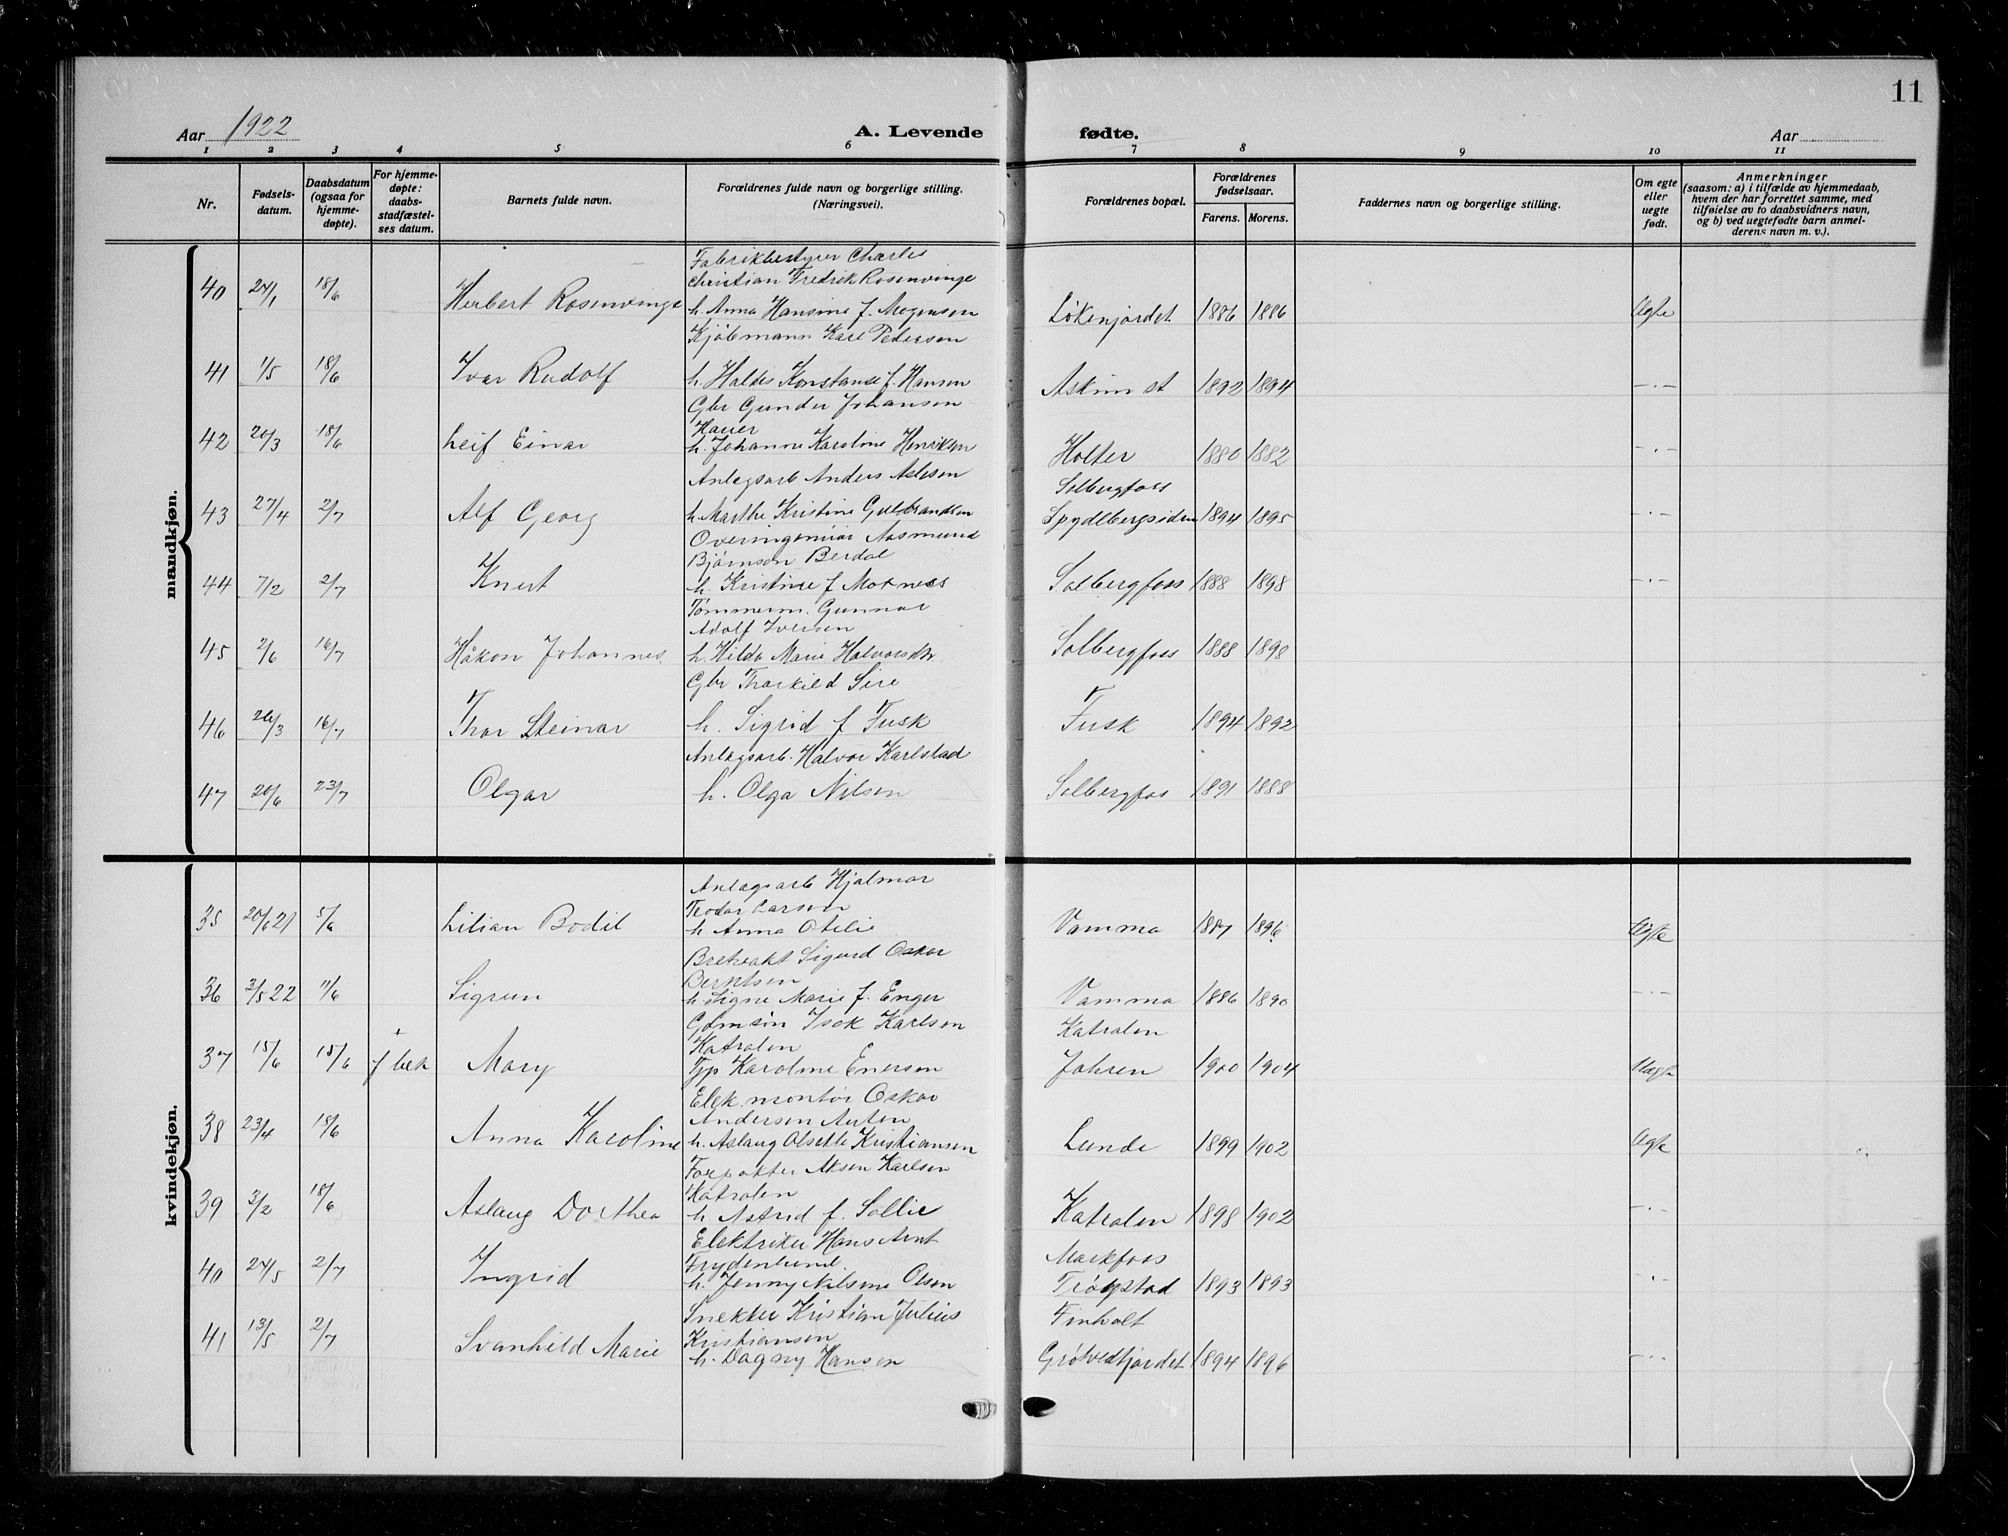 11
Aar 1922 A. Levende fødte. Aar
1 2 3 4 5 6 7 8 9 10 11
Nr.
Fødsels-
datum.
Daabsdatum
(ogsaa for
hjemme-
døpte).
For hjemme-
døpte:
daabs-
stadfæstel-
ses datum.
Barnets fulde navn.
Forældrenes fulde navn og borgerlige stilling.
(Næringsvei).
Forældrenes bopæl.
Forældrenes
fødselsaar.
Farens. Morens.
Faddernes navn og borgerlige stilling.
Om egte
eller
uegte
født.
Anmerkninger
(saasom: a) i tilfælde av hjemmedaab,
hvem der har forrettet samme, med
tilføielse av to daabsvidners navn,
og b) ved uegtefødte barn anmel-
derens navn m. v.).
mandkjøn.
Fabrikbestyrer Charles
Christian Fredrik Rosenvinge
40 24/1 18/6 Herbert Rosenvinge h. Anna Hansine f. Mogensen Løkenjordet 1886 1886 Ægte
Kjøbmann Karl Pedersen
41 1/5 18/6 Ivar Rudolf h. Haldis Konstanse f. Hansen Askim st 1892 1894 -.-
Gbr Gunder Johansen
Hauer
42 20/3 18/6 Leif Einar h. Johanne Karoline Henriksen Holter 1880 1882 -.-
Anlægsarb Anders Aslesen Solbergfoss
43 27/4 2/7 Alf Georg h. Marthe Kristine Gulbrandsen Spydebergsiden 1894 1895 -.-
Overingeniør Aasmund
Bjørnson Berdal
44 7/2 2/7 Knut h. Kristine f Moxness Solbergfoss 1888 1898 -.-
Tømmerm. Gunnar
Adolf Iversen
45 2/6 16/7 Håkon Johannes h. Hilda Marie Halvorsdtr Solbergfoss 1888 1898
Gbr Thorkild Sire
46 26/3 16/7 Thor Steinar h. Sigrid f Fusk Fusk 1894 1892
Anlægsarb. Halvor Karlstad
47 20/6 23/7 Olgar h. Olga Nilsen Solbergfos 1891 1888
kvindekjøn.
Anlægsarb Hjalmar
Teodor Larsen
35 20/6 21 5/6 Lilian Bodil h Anna Otelie Vamma 1887 1896 Ægte
Sigurd Oskar
Berntsen
36 3/5 22 11/6 Sigrun h Signe Marie f. Enger Vamma 1886 1890 -.-
Gdmsøn Isak Karlsen Katralen
+ Katralen
37 15/6 15/6 f bek Mary Tjp Karoline Enersen Jahren 1900 1904 Uægte
Elek. montør Oskar
Andersen Auten
38 23/4 18/6 Anna Karoline h. Aslaug Olsette Kristiansen Lunde 1899 1902 Ægte
Forpakter Aksen Karlsen
Katralen
39 3/2 18/6 Aslaug Dorthea h Astrid f. Sollie Katralen 1898 1902 -.-
Elektriker Hans Arnt Markfoss
Frydenlund.
40 24/5 2/7 Ingrid h. Jenny Nilsine Olsen Trøgstad 1893 1893 -.-
Snekker Kristian Julius Finholt
Kristiansen
41 13/5 2/7 Svanhild Marie h. Dagny Hansen Grøtvedtjordet 1894 1896 -.-